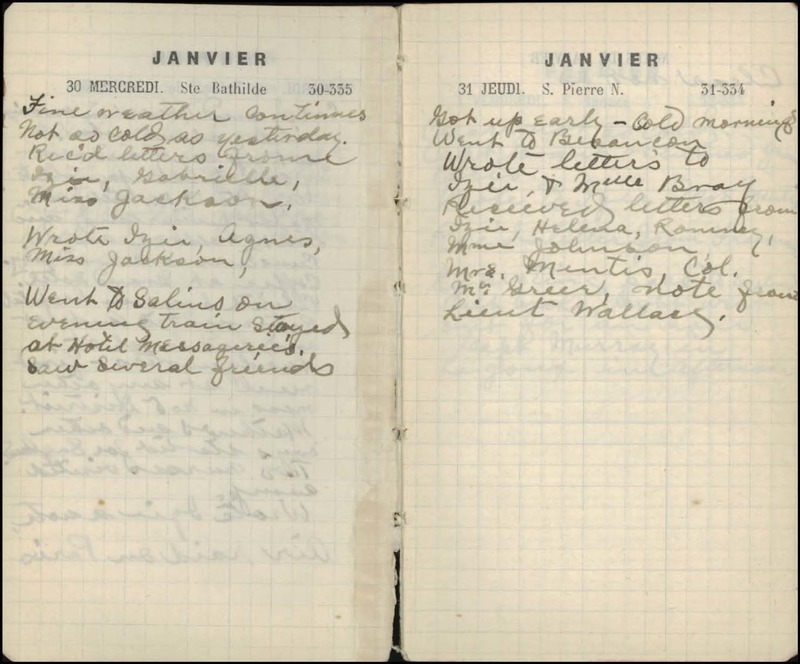 JANVIER
30 MERCREDI. Ste Bathilde 30-335
Fine weather continues
Not as cold as yesterday.
Rec'd letters frome
Izie, Gabrielle,
Miss Jackson.
Wrote Izie, Agnes,
Miss Jackson,
Went to Salins on
evening train stayed
at Hotil Messagerie's.
Saw several friends
JANVIER
31 JEUDI. S. Pierre N. 31-334
Got up early - cold morning
Went to Besancon
Wrote letters to
Izie, & Mlle Bray
Received letters from
Izie, Helena, Romney,
Mme Johnson,
Mrs. Mentis, Col.
Mc Greer, note from
Lieut Wallace.